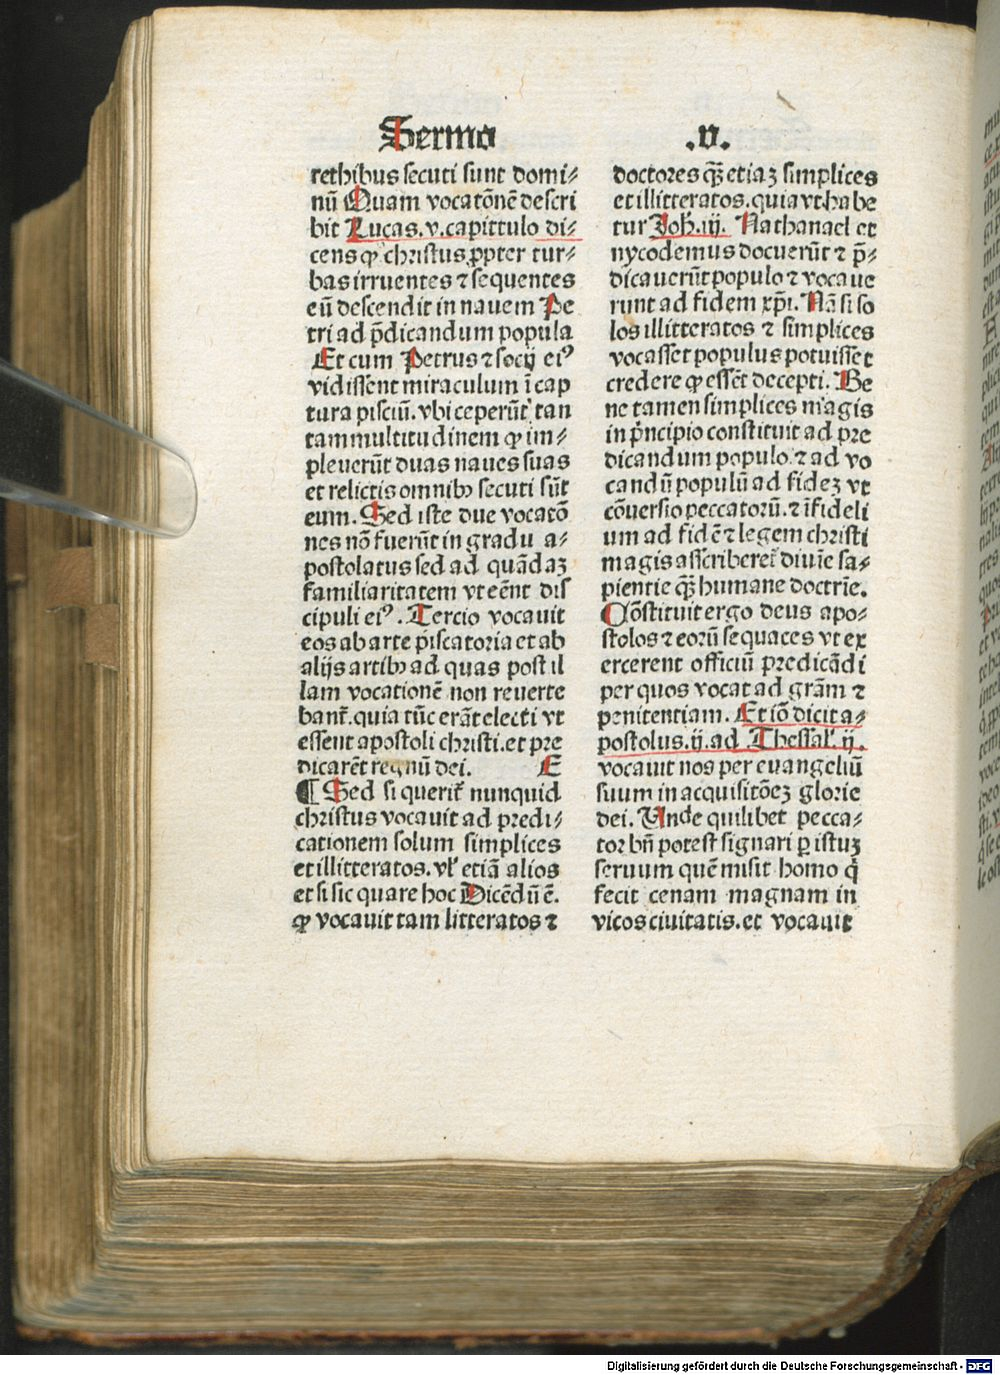 Sermo .v.
rethibus secuti sunt domi⸗
nū Quam vocatōnē descri
bit Lucas. v. capittulo di⸗
cens ꝙ christus ꝓpter tur⸗
bas irruentes ⁊ sequentes
eū descendit in nauem Pe
tri ad p̄dicandum popula
Et cum Petrus ⁊ socij eiꝰ
vidissent miraculum ī cap
tura pisciū. vbi ceperūt tan
tam multitudinem ꝙ im⸗
pleuerūt duas naues suas
et relictis omnibꝫ secuti sūt
eum. Sed iste due vocatō
nes nō fuerūt in gradu a⸗
postolatus sed ad quādaꝫ
familiaritatem vt eēnt dis
cipuli eiꝰ. Tercio vocauit
eos ab arte piscatoria et ab
alijs artibꝫ ad quas post il
lam vocationē non reuerte
banť. quia tūc erāt electi vt
essent apostoli christi. et pre
dicarēt regnū dei. E
¶ Sed si queriť nunquid
christus vocauit ad predi⸗
cationem solum simplices
et illitteratos. vł etiā alios
et si sic quare hoc Dicēdū ē.
ꝙ vocauit tam litteratos ⁊
doctores qꝫ̄ etiaꝫ simplices
et illitteratos. quia vt habe
tur Joh̄. iij. Nathanael et
nycodemus docuerūt ⁊ p̄⸗
dicauerūt populo ⁊ vocaue
runt ad fidem xp̄i. Nā si so
los illitteratos ⁊ simplices
vocasset populus potuisset
credere ꝙ essēt decepti. Be
ne tamen simplices magis
in p̄ncipio constituit ad pre
dicandum populo. ⁊ ad vo
candū populū ad fideꝫ vt
cōuersio peccatorū. ⁊ īfideli
um ad fidē ⁊ legem christi
magis asscribereť diuīe sa⸗
pientie qꝫ̄ humane doctrīe.
Cōstituit ergo deus apo⸗
stolos ⁊ eorū sequaces vt ex
ercerent officiū predicādi
per quos vocat ad grām ⁊
penitentiam. Et iō dicit a⸗
postolus. ij. ad Thessał. ij.
vocauit nos per euangeliū
suum in acquisitōeꝫ glorie
dei. Unde quilibet pecca⸗
tor bn̄ potest signari ꝑ istuꝫ
seruum quē misit homo q̇
fecit cenam magnam in
vicos ciuitatis. et vocauit
Digitalisierung gefördert durch die Deutsche Forschungsgemeinschaft - DFG